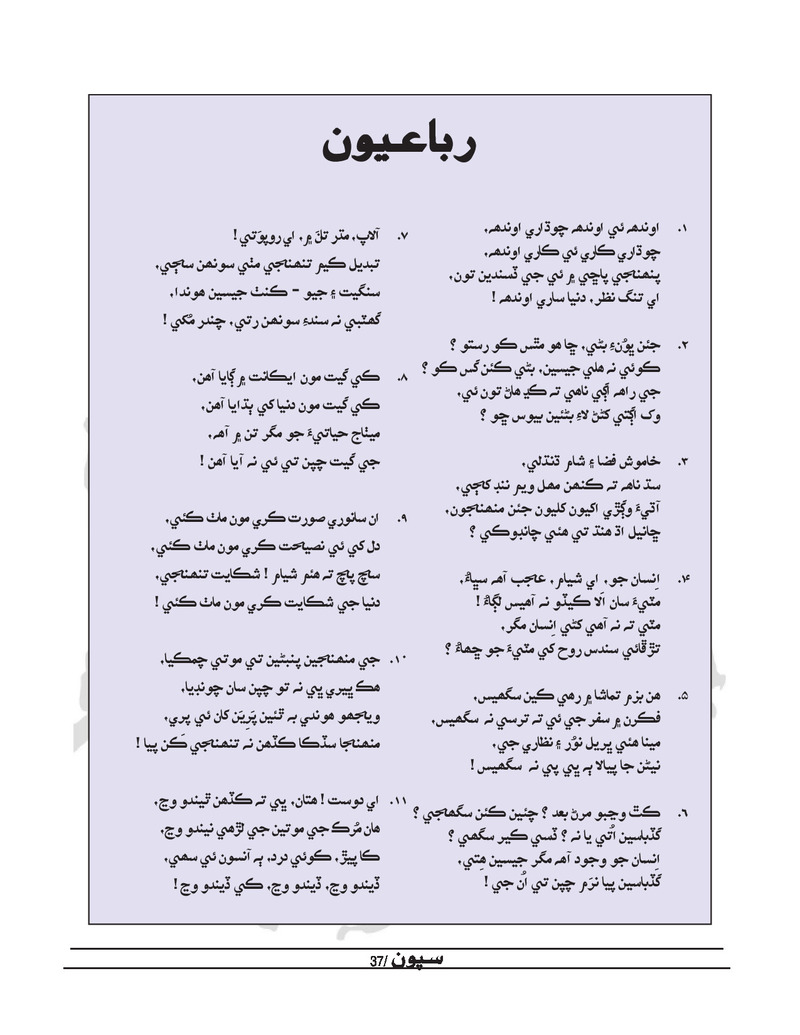 رباعيون
۱. اونده ئي اونده چوڌاري اونده،
چوڌاري ڪاري ئي ڪاري اونده،
پنهنجي پاڇي ۾ ئي جي ڏسندين تون،
اي تنگ نظر، دنيا ساري اونده !
۲. جئن پوُنءِ بڻي، ڇا هو مٿس ڪو رستو ؟
ڪوئي نه هلي جيسين، بڻي ڪئن گس ڪو ؟
جي راهه اڳي ناهي ته ڪڍ هاڻ تون ئي،
وک اڳتي کڻڻ لاءِ بڻئين بيوس ڇو ؟
۳. خاموش فضا ۽ شام ڌنڌلي،
سڌ ناهه ته ڪنهن مهل ويم ننڊ کڄي،
آتيءَ وڳڙي اکيون کليون جئن منهنجون،
ڇانيل اڌ هنڌ تي هئي چانڊوڪي ؟
۴. اِنسان جو، اي شيام، عجب آهه سڀاءُ،
مٽيءَ سان اَلا ڪيڏو نه آهيس لڳاءُ !
مٽي ته نه آهي کٿي اِنسان مگر،
تڙڦائي سندس روح کي مٽيءَ جو ڇهاءُ ؟
۵. هن بزم تماشا ۾ رهي ڪين سگهيس،
فڪرن ۾ سفر جي ئي ته ترسي نه سگهيس،
مينا هئي ڀريل نوُر ۽ نظاري جي،
نيڻن جا پيالا ٻه ڀي پي نه سگهيس !
۶. ڪٿ وڃبو مرڻ بعد ؟ چئين ڪئن سگهجي ؟
گڏباسين اُتي يا نه ؟ ڏسي ڪير سگهي ؟
اِنسان جو وجود آهه مگر جيسين هِتي،
گڏباسين پيا نرَم چپن تي اُن جي !
۷. آلاپ، مٽر تلَ ۾، اي روپوَتي !
تبديل ڪيم تنهنجي مٺي سونهن سڄي،
سنگيت ۽ جيو – ڪنٺ جيسين هوندا،
گهٽبي نه سندءِ سونهن رتي، چندر مُکي !
۸. ڪي گيت مون ايڪانت ۾ ڳايا آهن،
ڪي گيت مون دنيا کي ٻڌايا آهن،
ميٺاج حياتيءَ جو مگر تن ۾ آهه،
جي گيت چپن تي ئي نه آيا آهن !
۹. ان سانوري صورت ڪري مون ماٺ ڪئي،
دل کي ئي نصيحت ڪري مون ماٺ ڪئي،
سچ پچ ته هئم شيام ! شڪايت تنهنجي،
دنيا جي شڪايت ڪري مون ماٺ ڪئي !
۱۰. جي منهنجين پنبڻين تي موتي چمڪيا،
هڪ ڀيري ڀي نه تو چپن سان چونڊيا،
ويجهو هوندي به ٿئين پَريَن کان ئي پري،
منهنجا سڏڪا ڪڏهن نه تنهنجي ڪَن پيا !
۱۱. اي دوست ! هتان، ڀي ته ڪڏهن ٿيندو وڃ،
هان مُرڪ جي موتين جي لڙهي نيندو وڃ،
ڪا پيڙ، ڪوئي درد، ٻه آنسون ئي سهي،
ڏيندو وڃ، ڏيندو وڃ، ڪي ڏيندو وڃ !
سپون /37